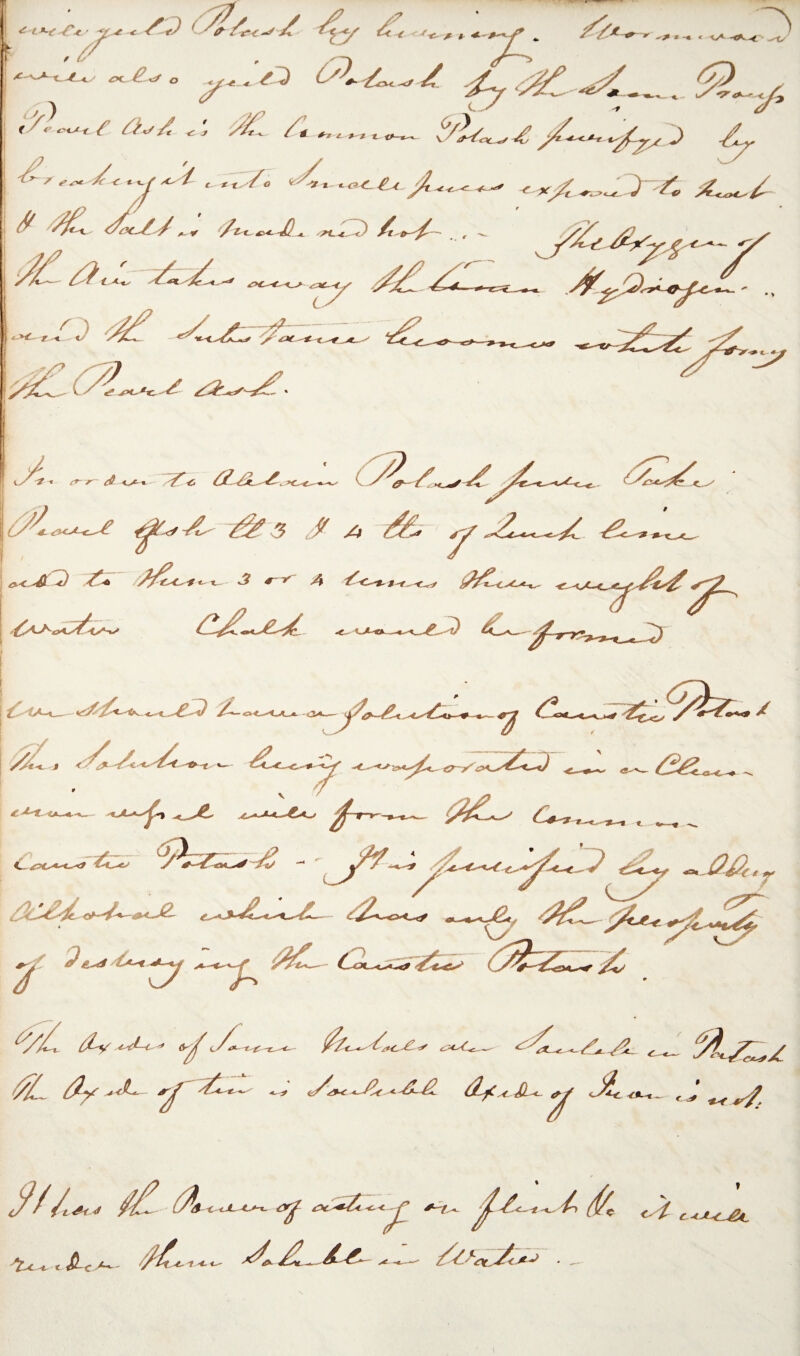 will yeild Potash by burning. Wormwood
will also yeild Potash by the Same Process
Pearl Ash is the Common Potash purifyed by
breaking it into Small pieces exposed to heat
& the Salt is made red hot ... - The Oxygen of
the Air takes away the Hydrogen ..
and the Substance becomes white formg
the Pearl Ash.
In order to Obtain Potash pure Take
Pearl Ash ℔ 3 & 4 ℔s of Quick lime
add to them 3 or 4 times their weight of
Water Chalk would be formed
We should have a Solution of Caustic Potash
This Solution being evaporated in a Clean
iron vessel will form the Common
Caustic Potash - It is purified by addng
Alkohol which has only the property
of destroying the Caustic Potash.
The Oxides of Some Metals are Souluble in Potash
The Oxide of tin is Souluble Oxide of Iron is not:
It has the Power of acting on flint &c it will
render them Soluble in Water . -